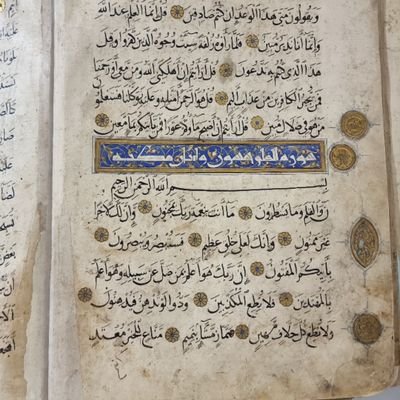 ويقولون متى هذا الوعد إن كنتم صادقين قل إنما العلم عند الله
وإنما أنا نذير مبين فلما رأوه زلفة سيئت وجوه الذين كفروا وقيل
هذا الذي كنتم به تدعون قل أرأيتم إن أهلكني الله ومن معي أو رحمنا
فمن يجير الكافرين من عذاب أليم قل هو الرحمن آمنا به وعليه توكلنا فستعلمون
من هو في ضلال مبين قل أرأيتم إن أصبح ماؤكم غورا فمن يأتيكم بماء معين
سورة القلم خمسون مكية
بسم الله الرحمن الرحيم
ن والقلم وما يسطرون ما أنت بنعمة ربك بمجنون وإن لك لأجرا
غير ممنون وإنك لعلى خلق عظيم فستبصر ويبصرون
بأيكم المفتون إن ربك هو أعلم بمن ضل عن سبيله وهو أعلم
بالمهتدين فلا تطع المكذبين ودوا لو تدهن فيدهنون
ولا تطع كل حلاف مهين هماز مشاء بنميم مناع للخير معتد